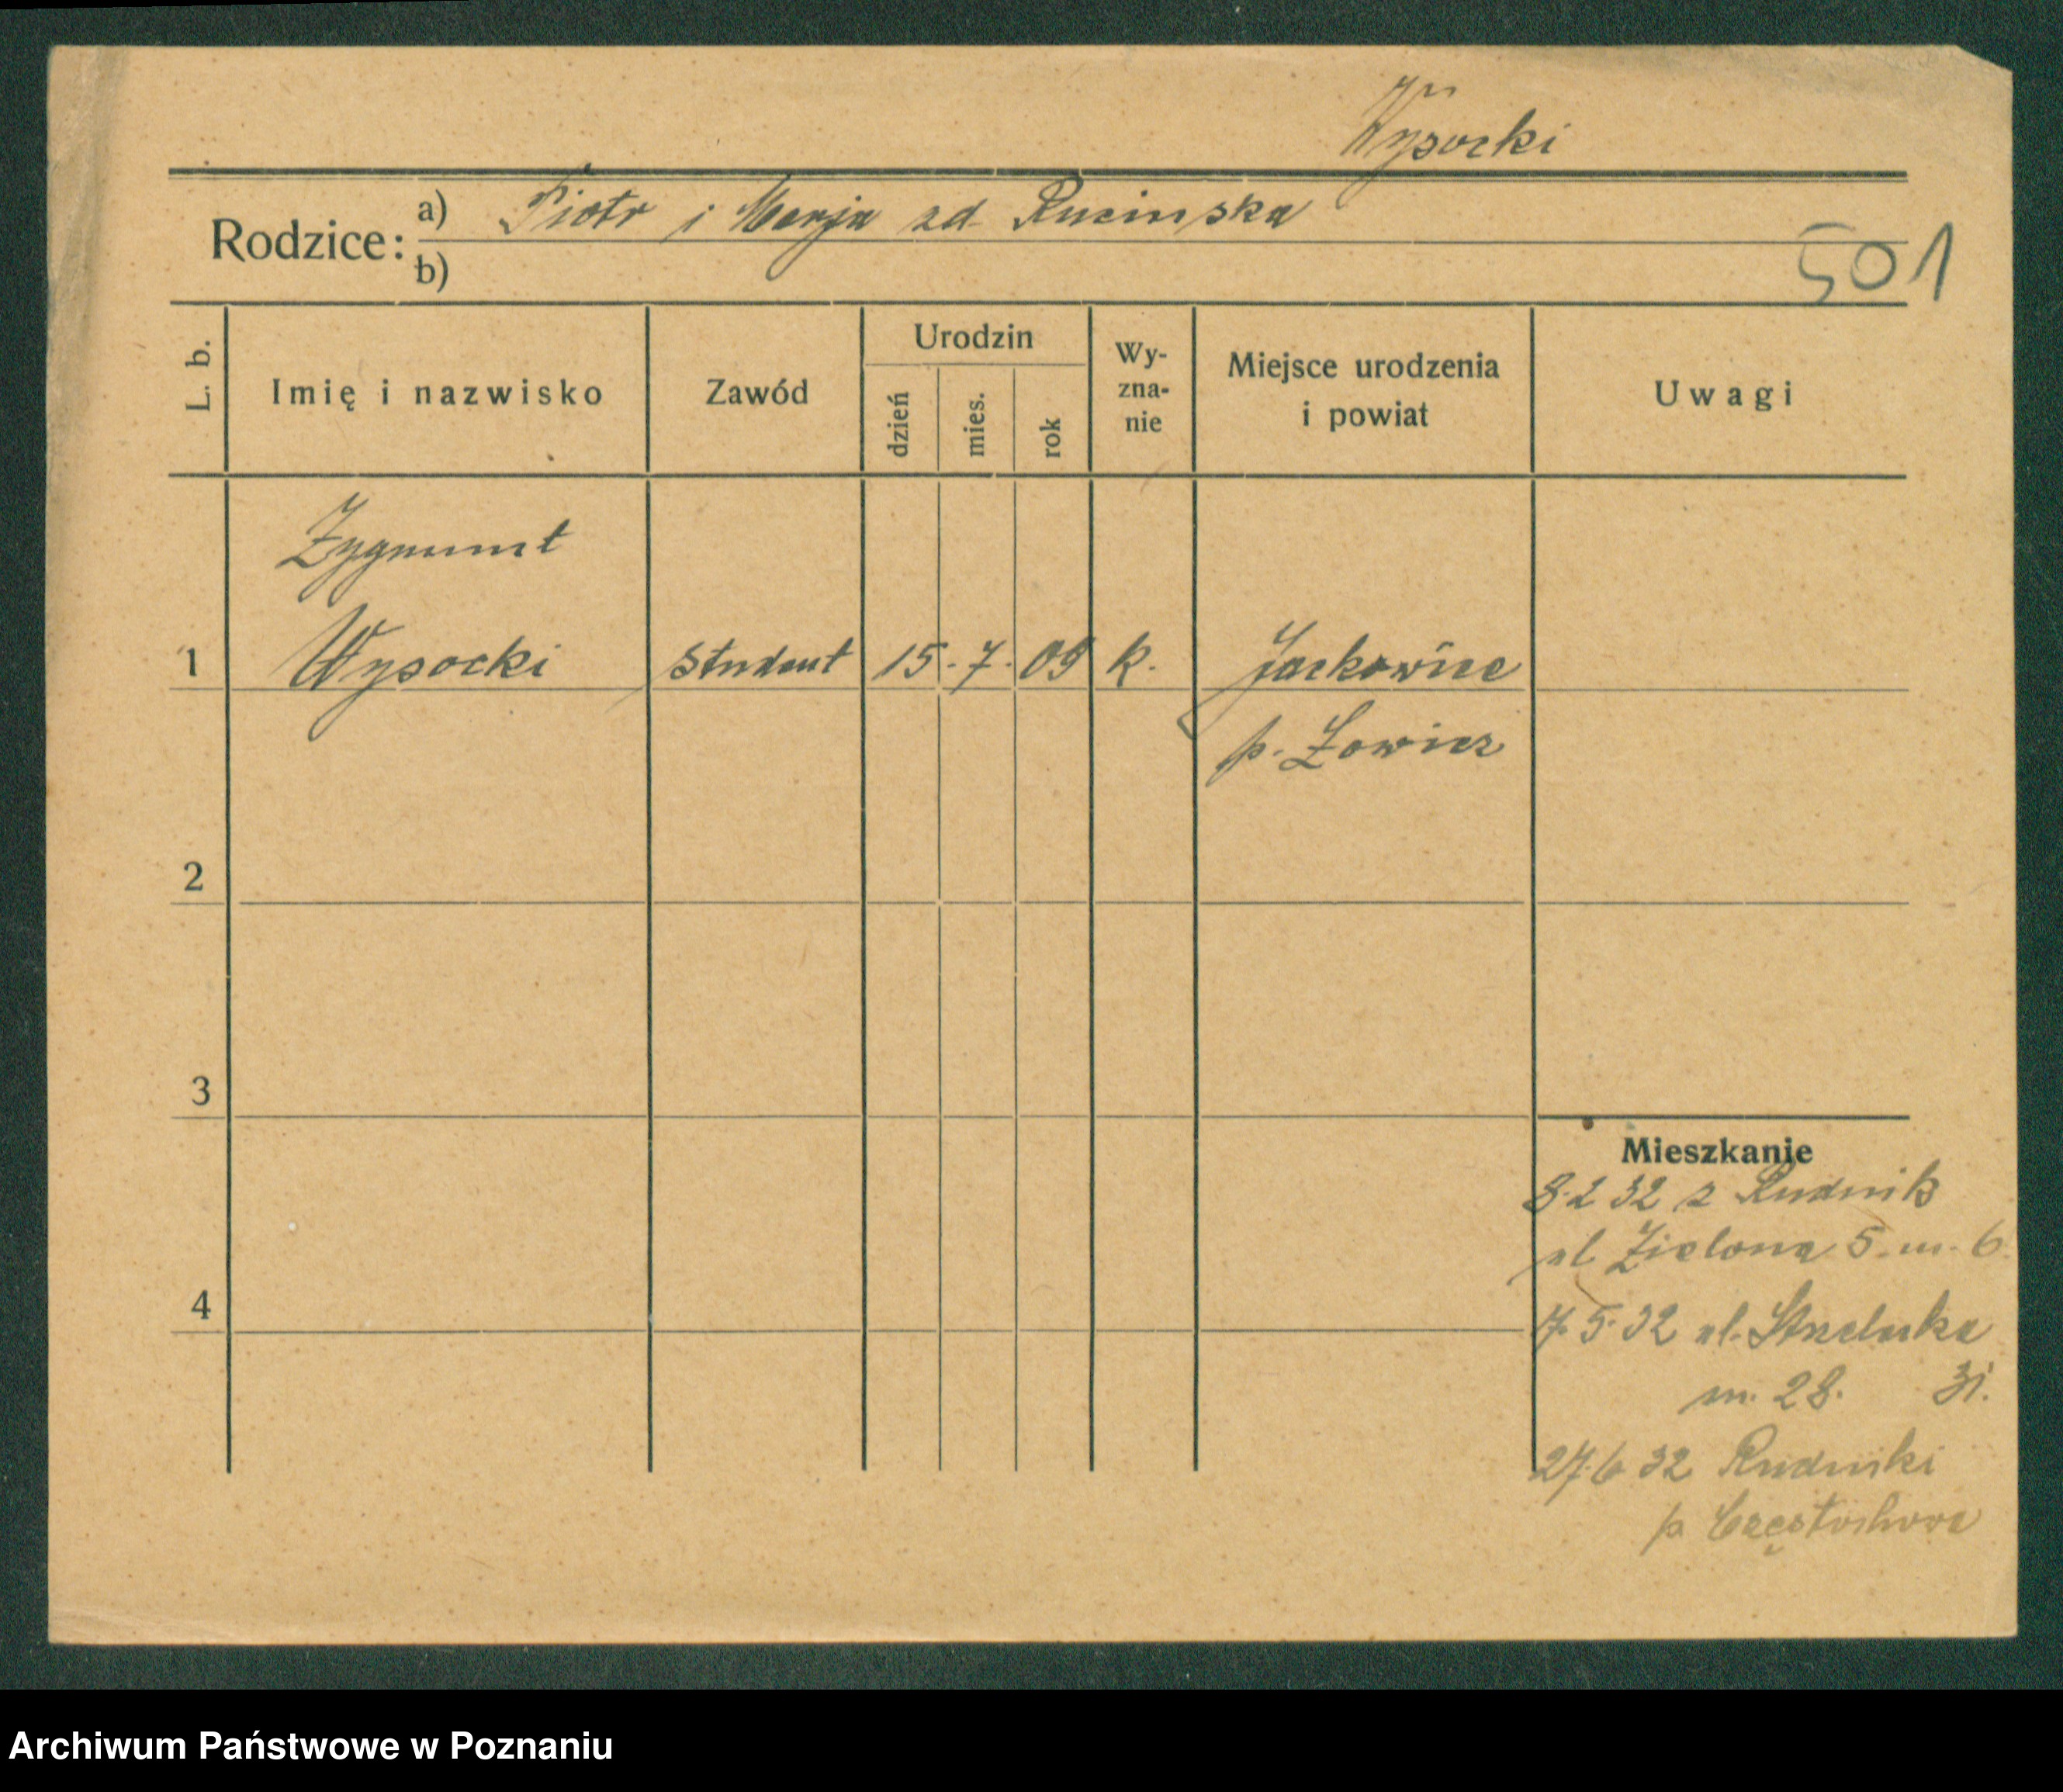 Wysocki
Rodzice: a) Piotr i Marja zd Rucinska
b)
501
L. b.
Imię i nazwisko
Zawód
Urodzin
dzień
mies.
rok
Wy-
zna-
nie
Miejsce urodzenia
i powiat
Uwagi
Zygmunt
1 Wysocki student 15. 7. 09 k. Jackowice
p. Łowicz
2
3
4
Mieszkanie
8.2 32 z Rudnik
ul Zielona 5. m. 6.
17.5.32 ul. Strzelecka
m. 28. 31.
27.6 32 Rudniki
p Częstochowa
Archiwum Państwowe w Poznaniu